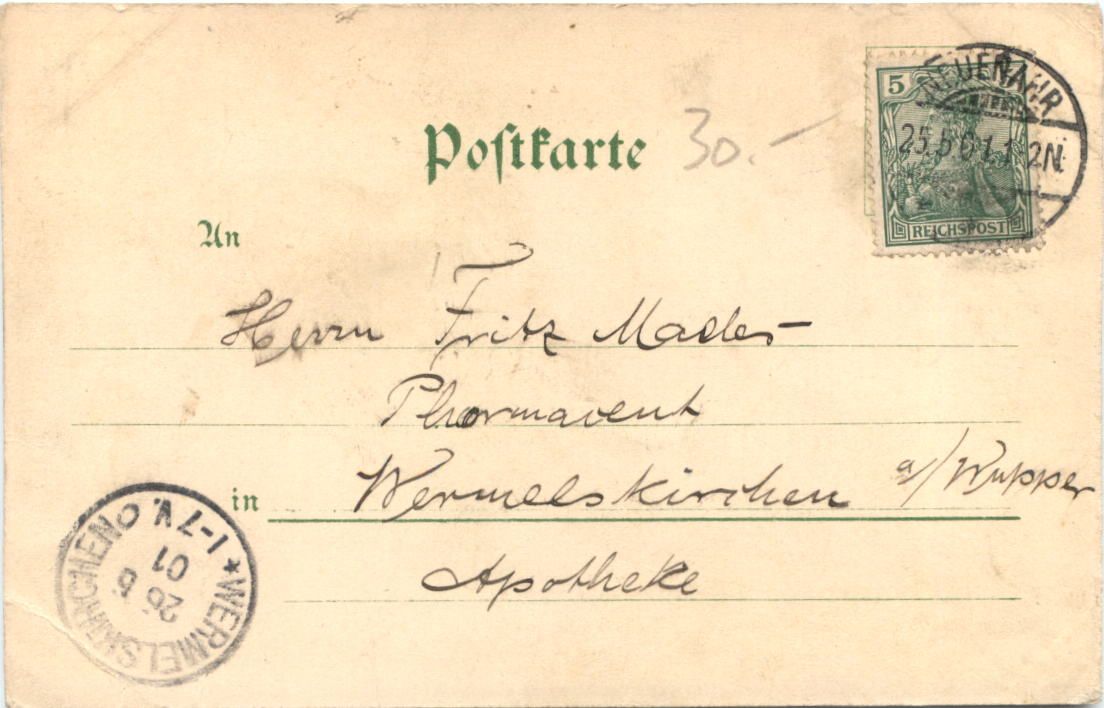 Postkarte
30.-
5
NEUENAHR
25.5.01.1-2N.
REICHSPOST
An
Herrn Fritz Mades
Pharmaceut
in Wermelskirchen a/Wupper
Apotheke
* WERMELSKIRCHEN
26 5
01
1-7V.